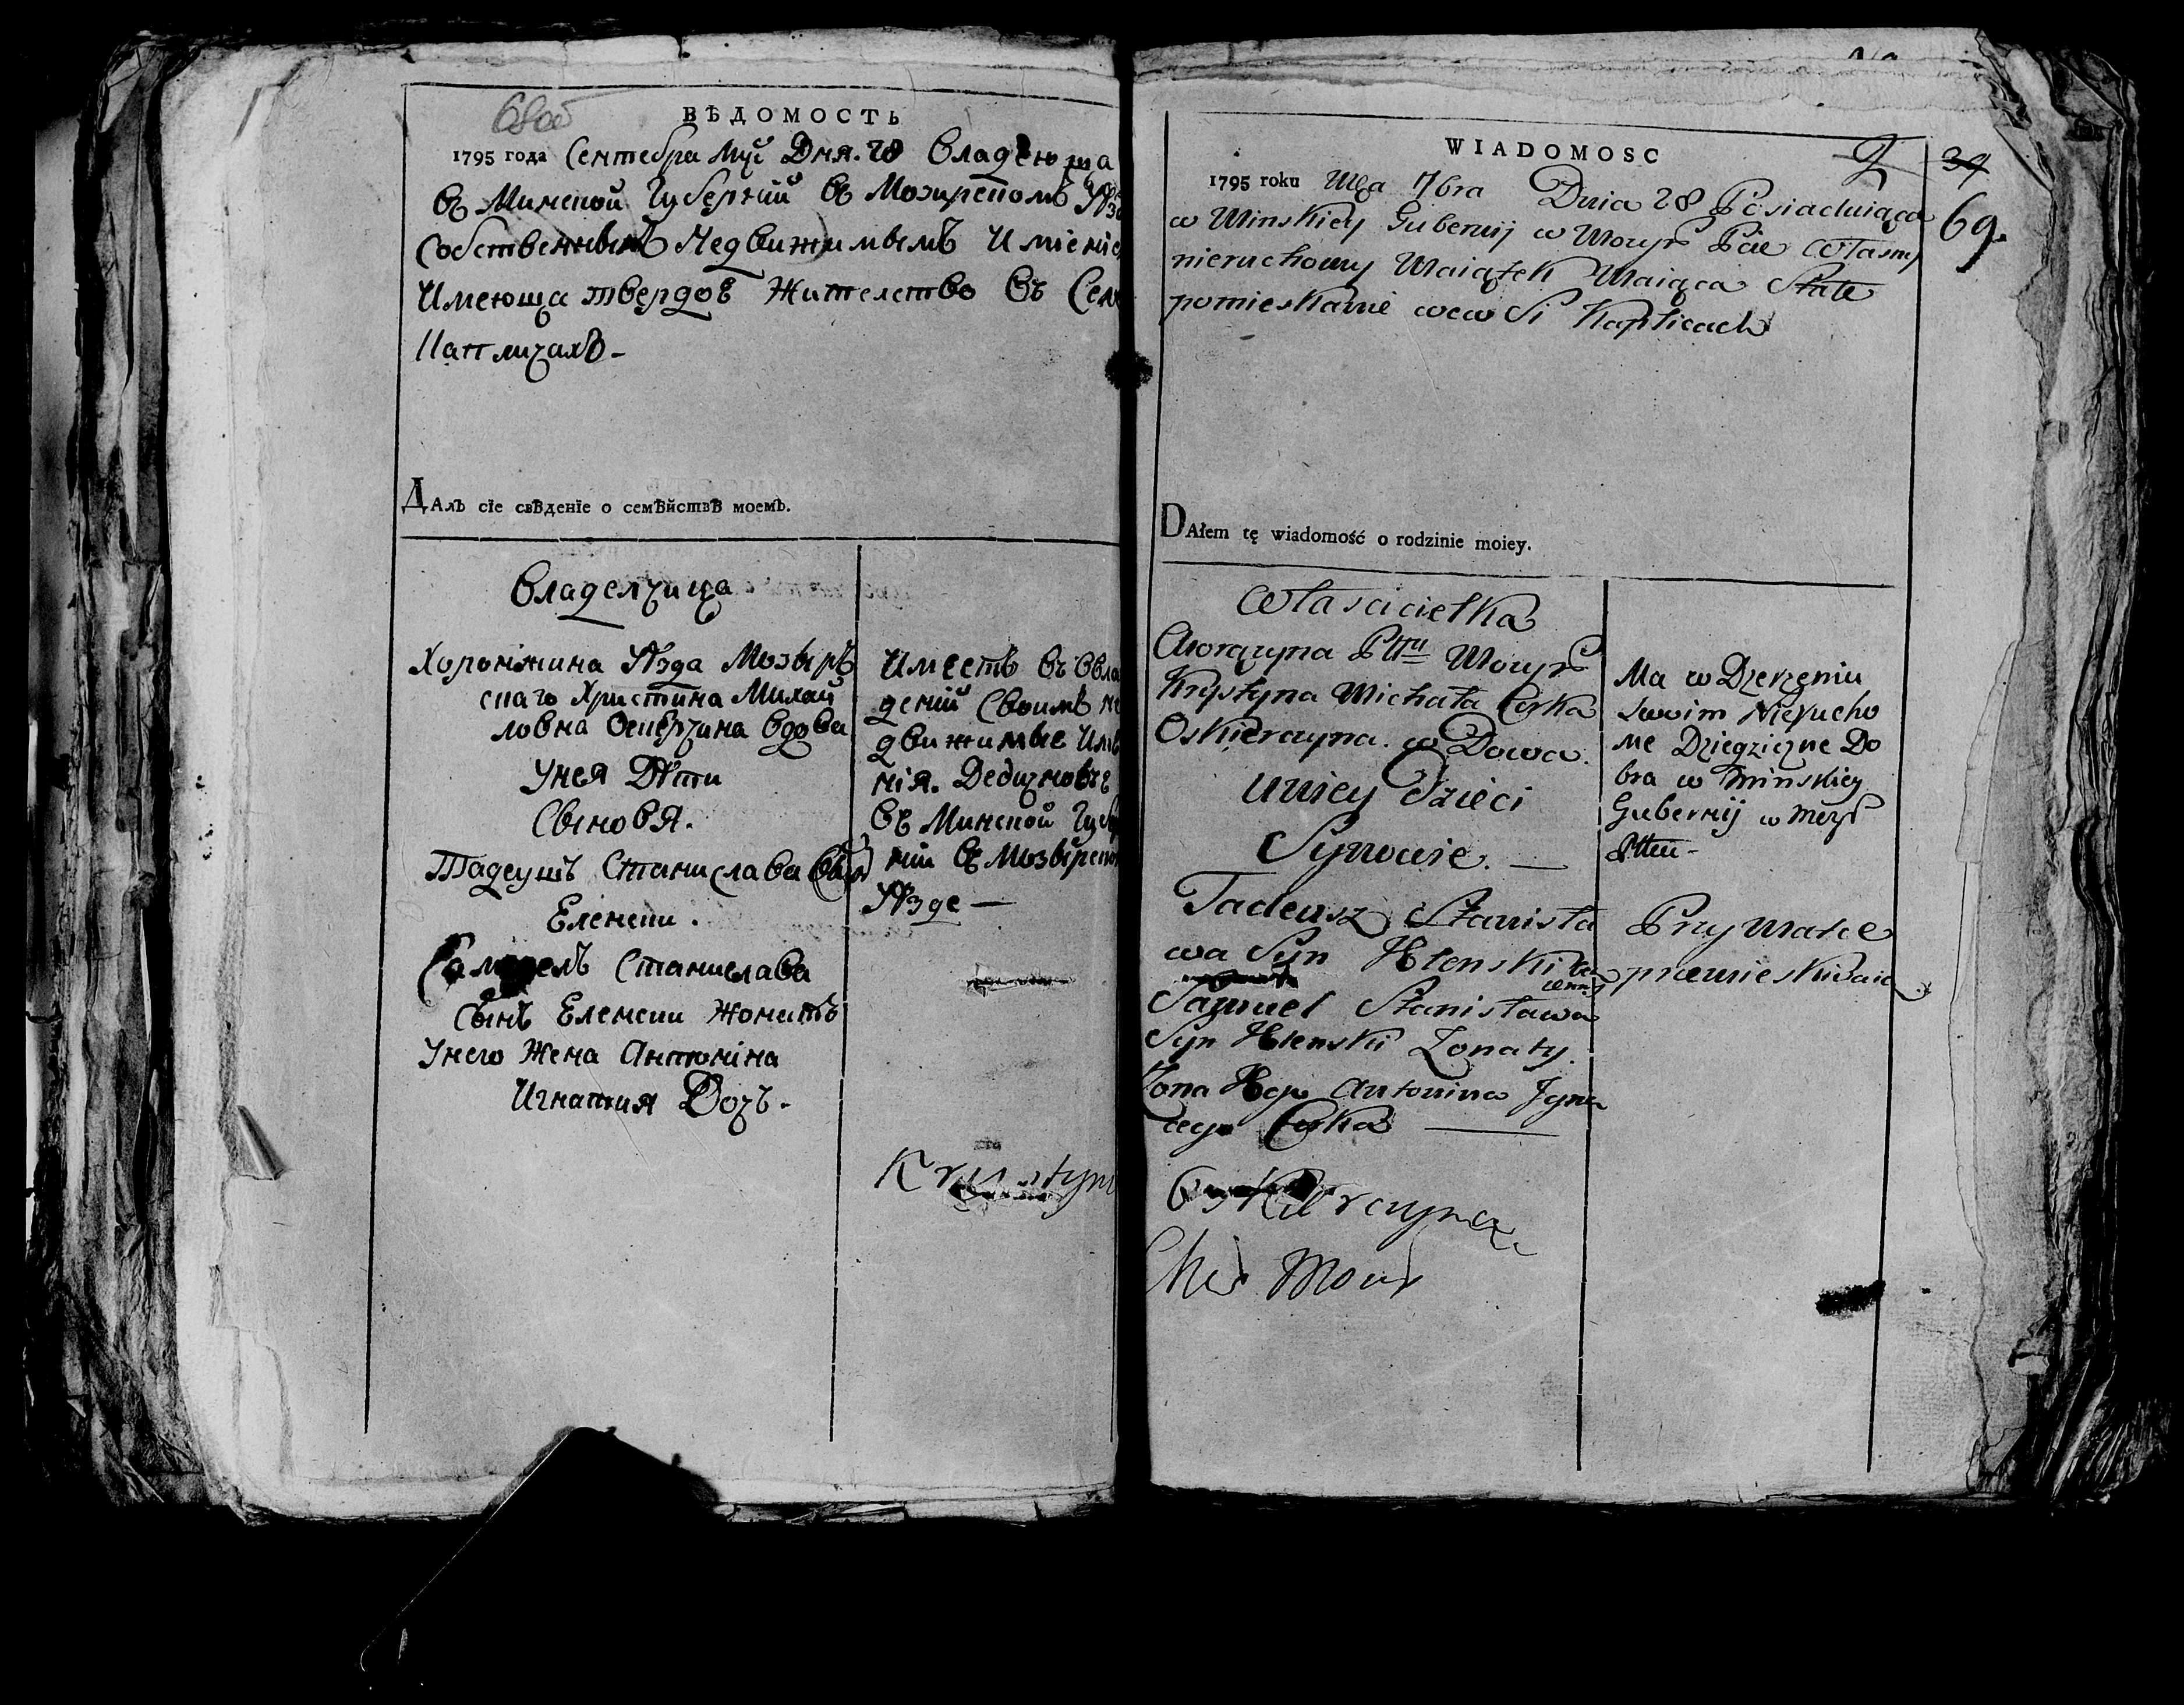 68об
ВѢДОМОСТЬ
1795 года Сентебра Мца Дня. 28 Владеюща
въ Минской Губерніи въ Мозирскомъ
Собственнымъ Недвижимымъ Имѣніе
Имеюща твердое Жителство въ
Капличахъ -
ДАлЪ сїе свѢденїе о семѢйствѢ моемЪ.
Владелчица
Хоронжина Уѣзда Мозыръ
скаго Христина Михай
ловна Оскерчина вдова
Унея Дѣти
Сыновя.
Тадеушъ Станислава Сынъ
Еленски.
Самуелъ Станислава
Сынъ Еленски Жонатъ
Унего Жена Антонина
Игнатия Дочъ.
Имеетъ въ Вла
дении Своимъ не
движимые Име
нія. Дедичновъ
въ Минской Губер
нии въ Мозырском
Уѣзде —
Krystyna
WIADOMOSC
2 34
1795 roku Mca 7bra Dnia 28 Posiaduiąca
69.
w Minskiey Gubernij w Mozyr Pcie Własny
nieruchomy Maiątek Maiąca Stałe
pomieskanie we w Si Kaplicach
DAłem tę wiadomość o rodzinie moiey.
Włascicielka
Chorązyna Pttu Mozyr
Krystyna Michała Corka
Oskierczyna. w Dowa.
U niey Dzieci
Synowie. —
Tadeusz Stanisła
wa Syn Helenski
Samuel Stanisława
Syn Helenski Zonaty.
Zona Jego Antonina Jgna
cego Corka —
Ma w Dzerzeniu
Swoim Nierucho
me Dziedziczne Do
bra w Minskiey
Gubernij w Mozyr
Pttcie -
Przy Matce
przemieskiwaie
Oskierczyna
Ch Mozyr